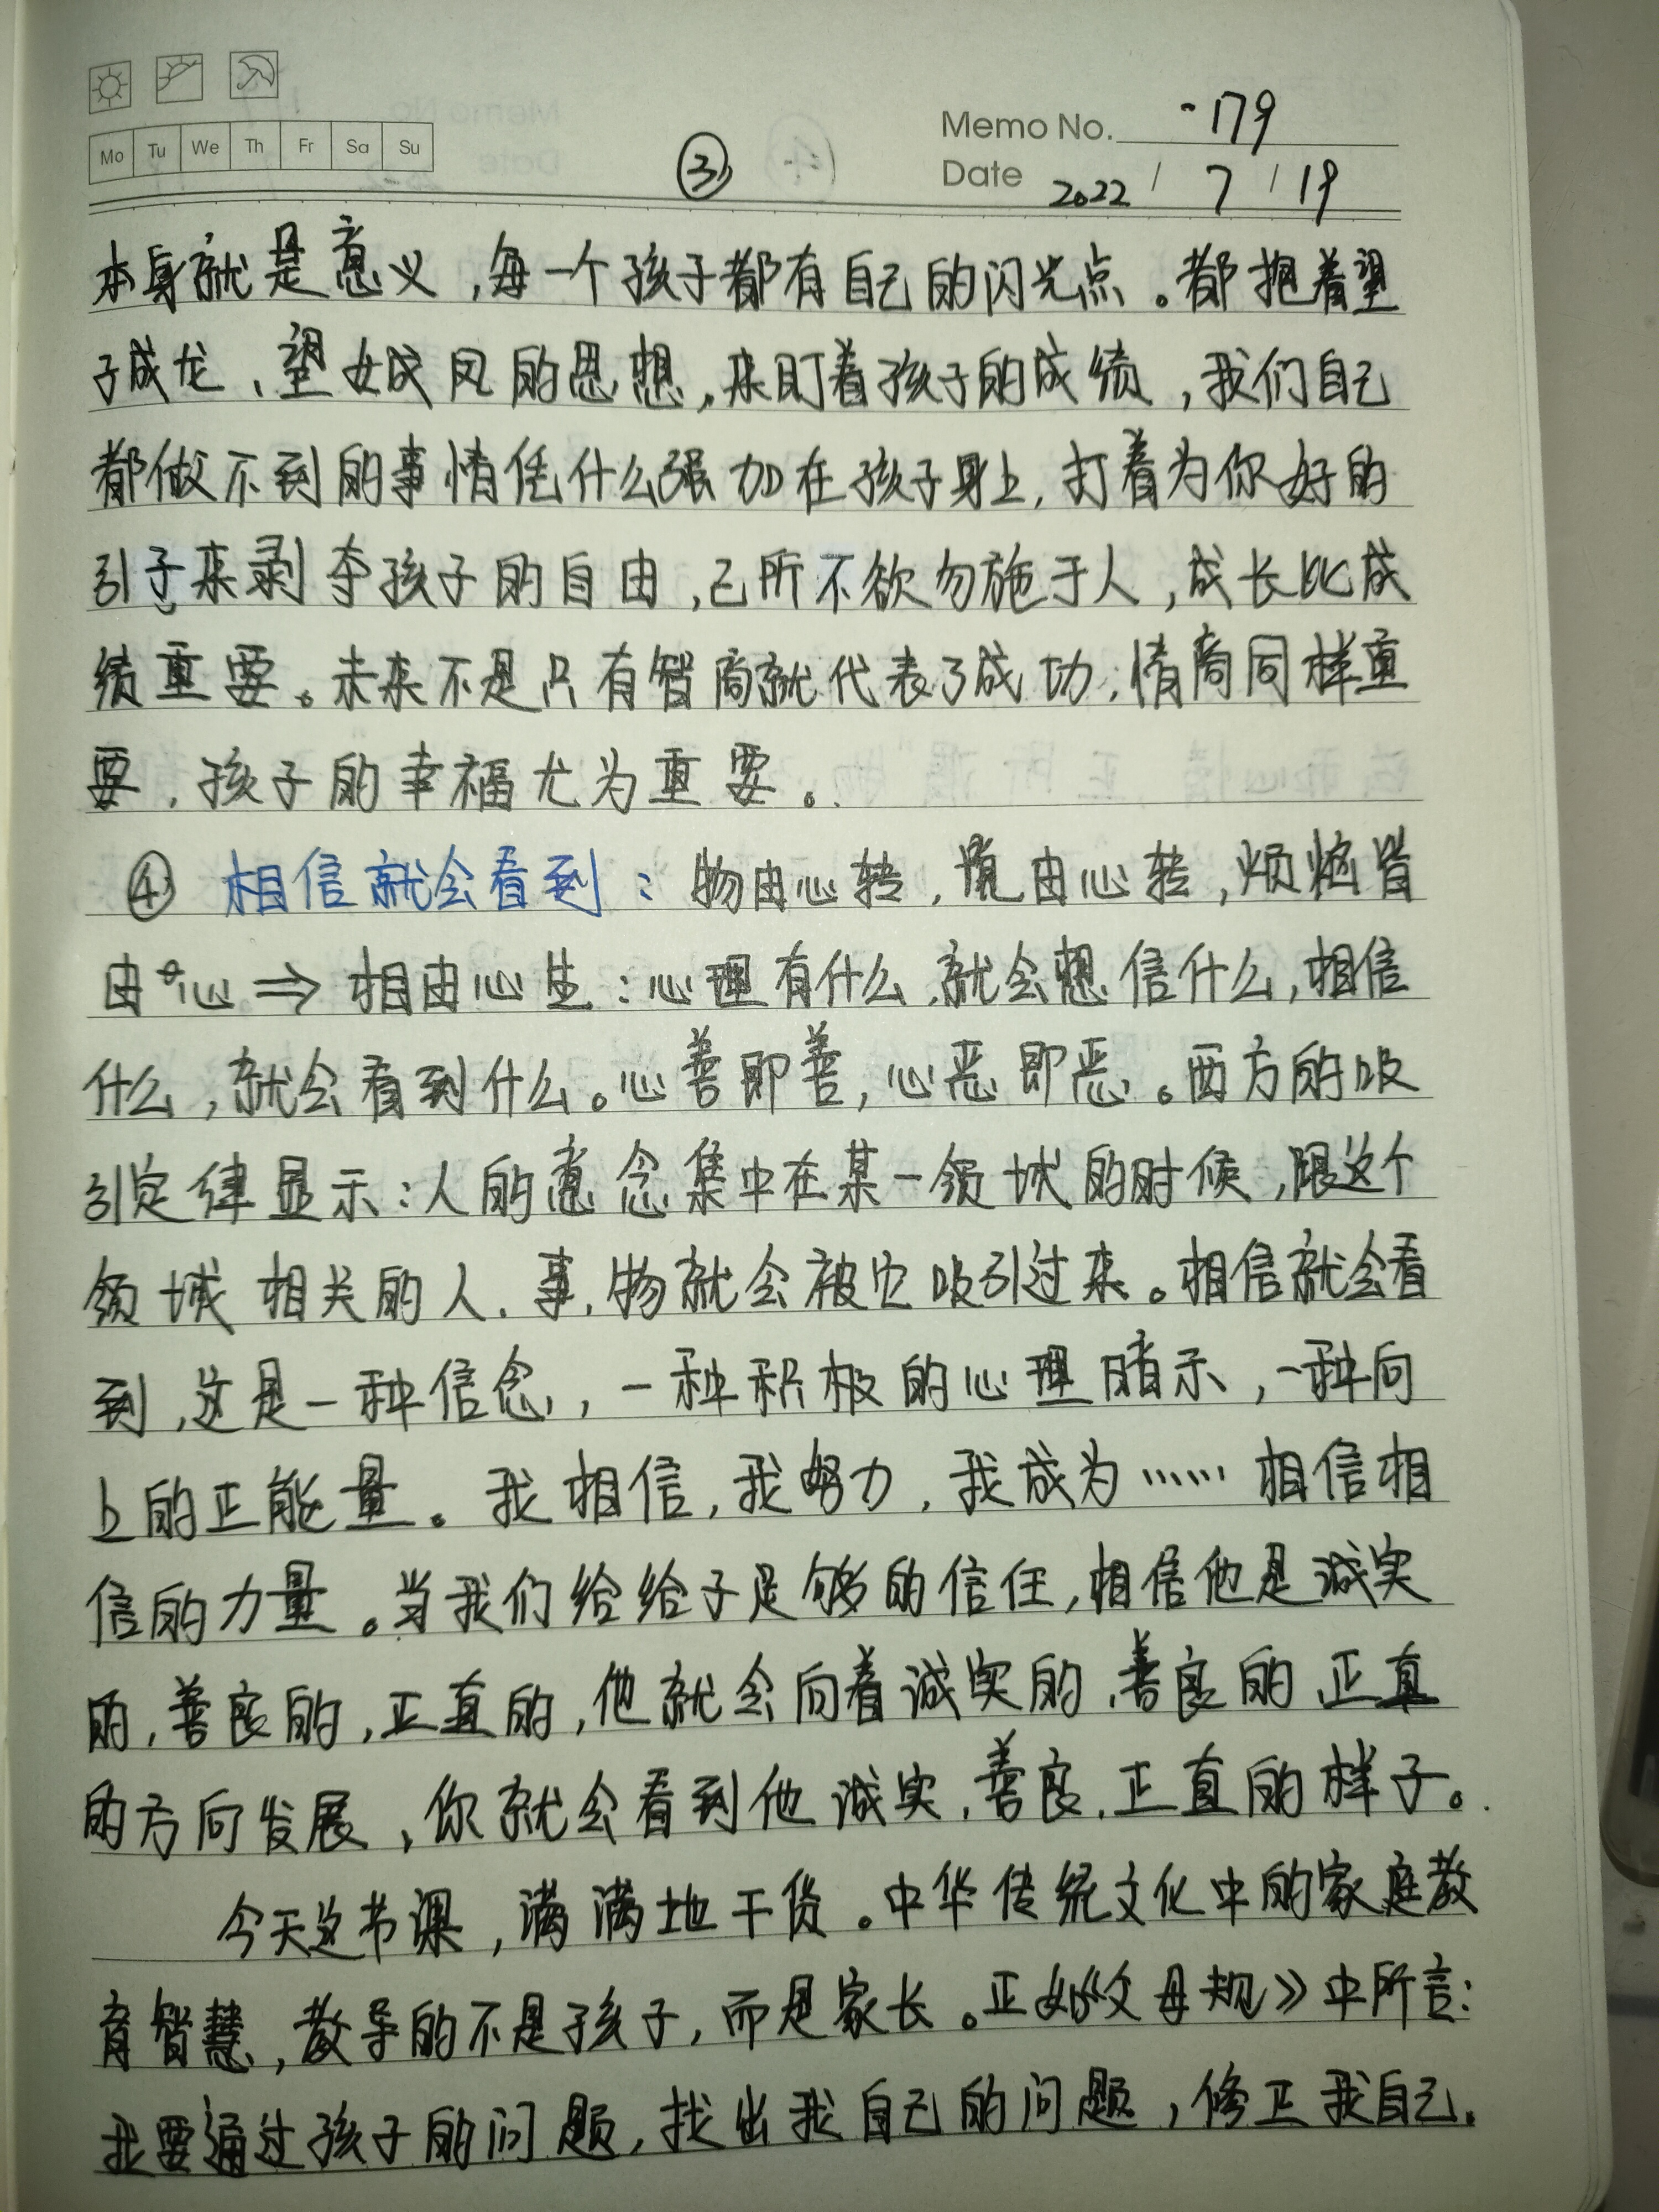 Memo No. -179
Mo Tu We Th Fr Sa Su
③
Date 2022 / 7 / 19
本身就是意义，每一个孩子都有自己的闪光点。都抱着望
子成龙、望女成凤的思想，来盯着孩子的成绩，我们自己
都做不到的事情凭什么强加在孩子身上，打着为你好的
引子来剥夺孩子的自由，己所不欲勿施于人，成长比成
绩重要。未来不是只有智商就代表了成功；情商同样重
要，孩子的幸福尤为重要。
④ 相信就会看到：物由心转，境由心转，烦恼皆
由心⇒相由心生：心理有什么，就会想信什么，相信
什么，就会看到什么。心善即善，心恶即恶。西方的吸
引定律显示：人的意念集中在某一领域的时候，跟这个
领域相关的人、事、物就会被它吸引过来。相信就会看
到，这是一种信念，一种积极的心理暗示，一种向
上的正能量。我相信，我努力，我成为……相信相
信的力量。当我们给给子足够的信任，相信他是诚实
的，善良的，正直的，他就会向着诚实的、善良的、正直
的方向发展，你就会看到他诚实，善良，正直的样子。
今天这节课，满满地干货。中华传统文化中的家庭教
育智慧，教导的不是孩子，而是家长。正如《父母规》中所言：
我要通过孩子的问题，找出我自己的问题，修正我自己。